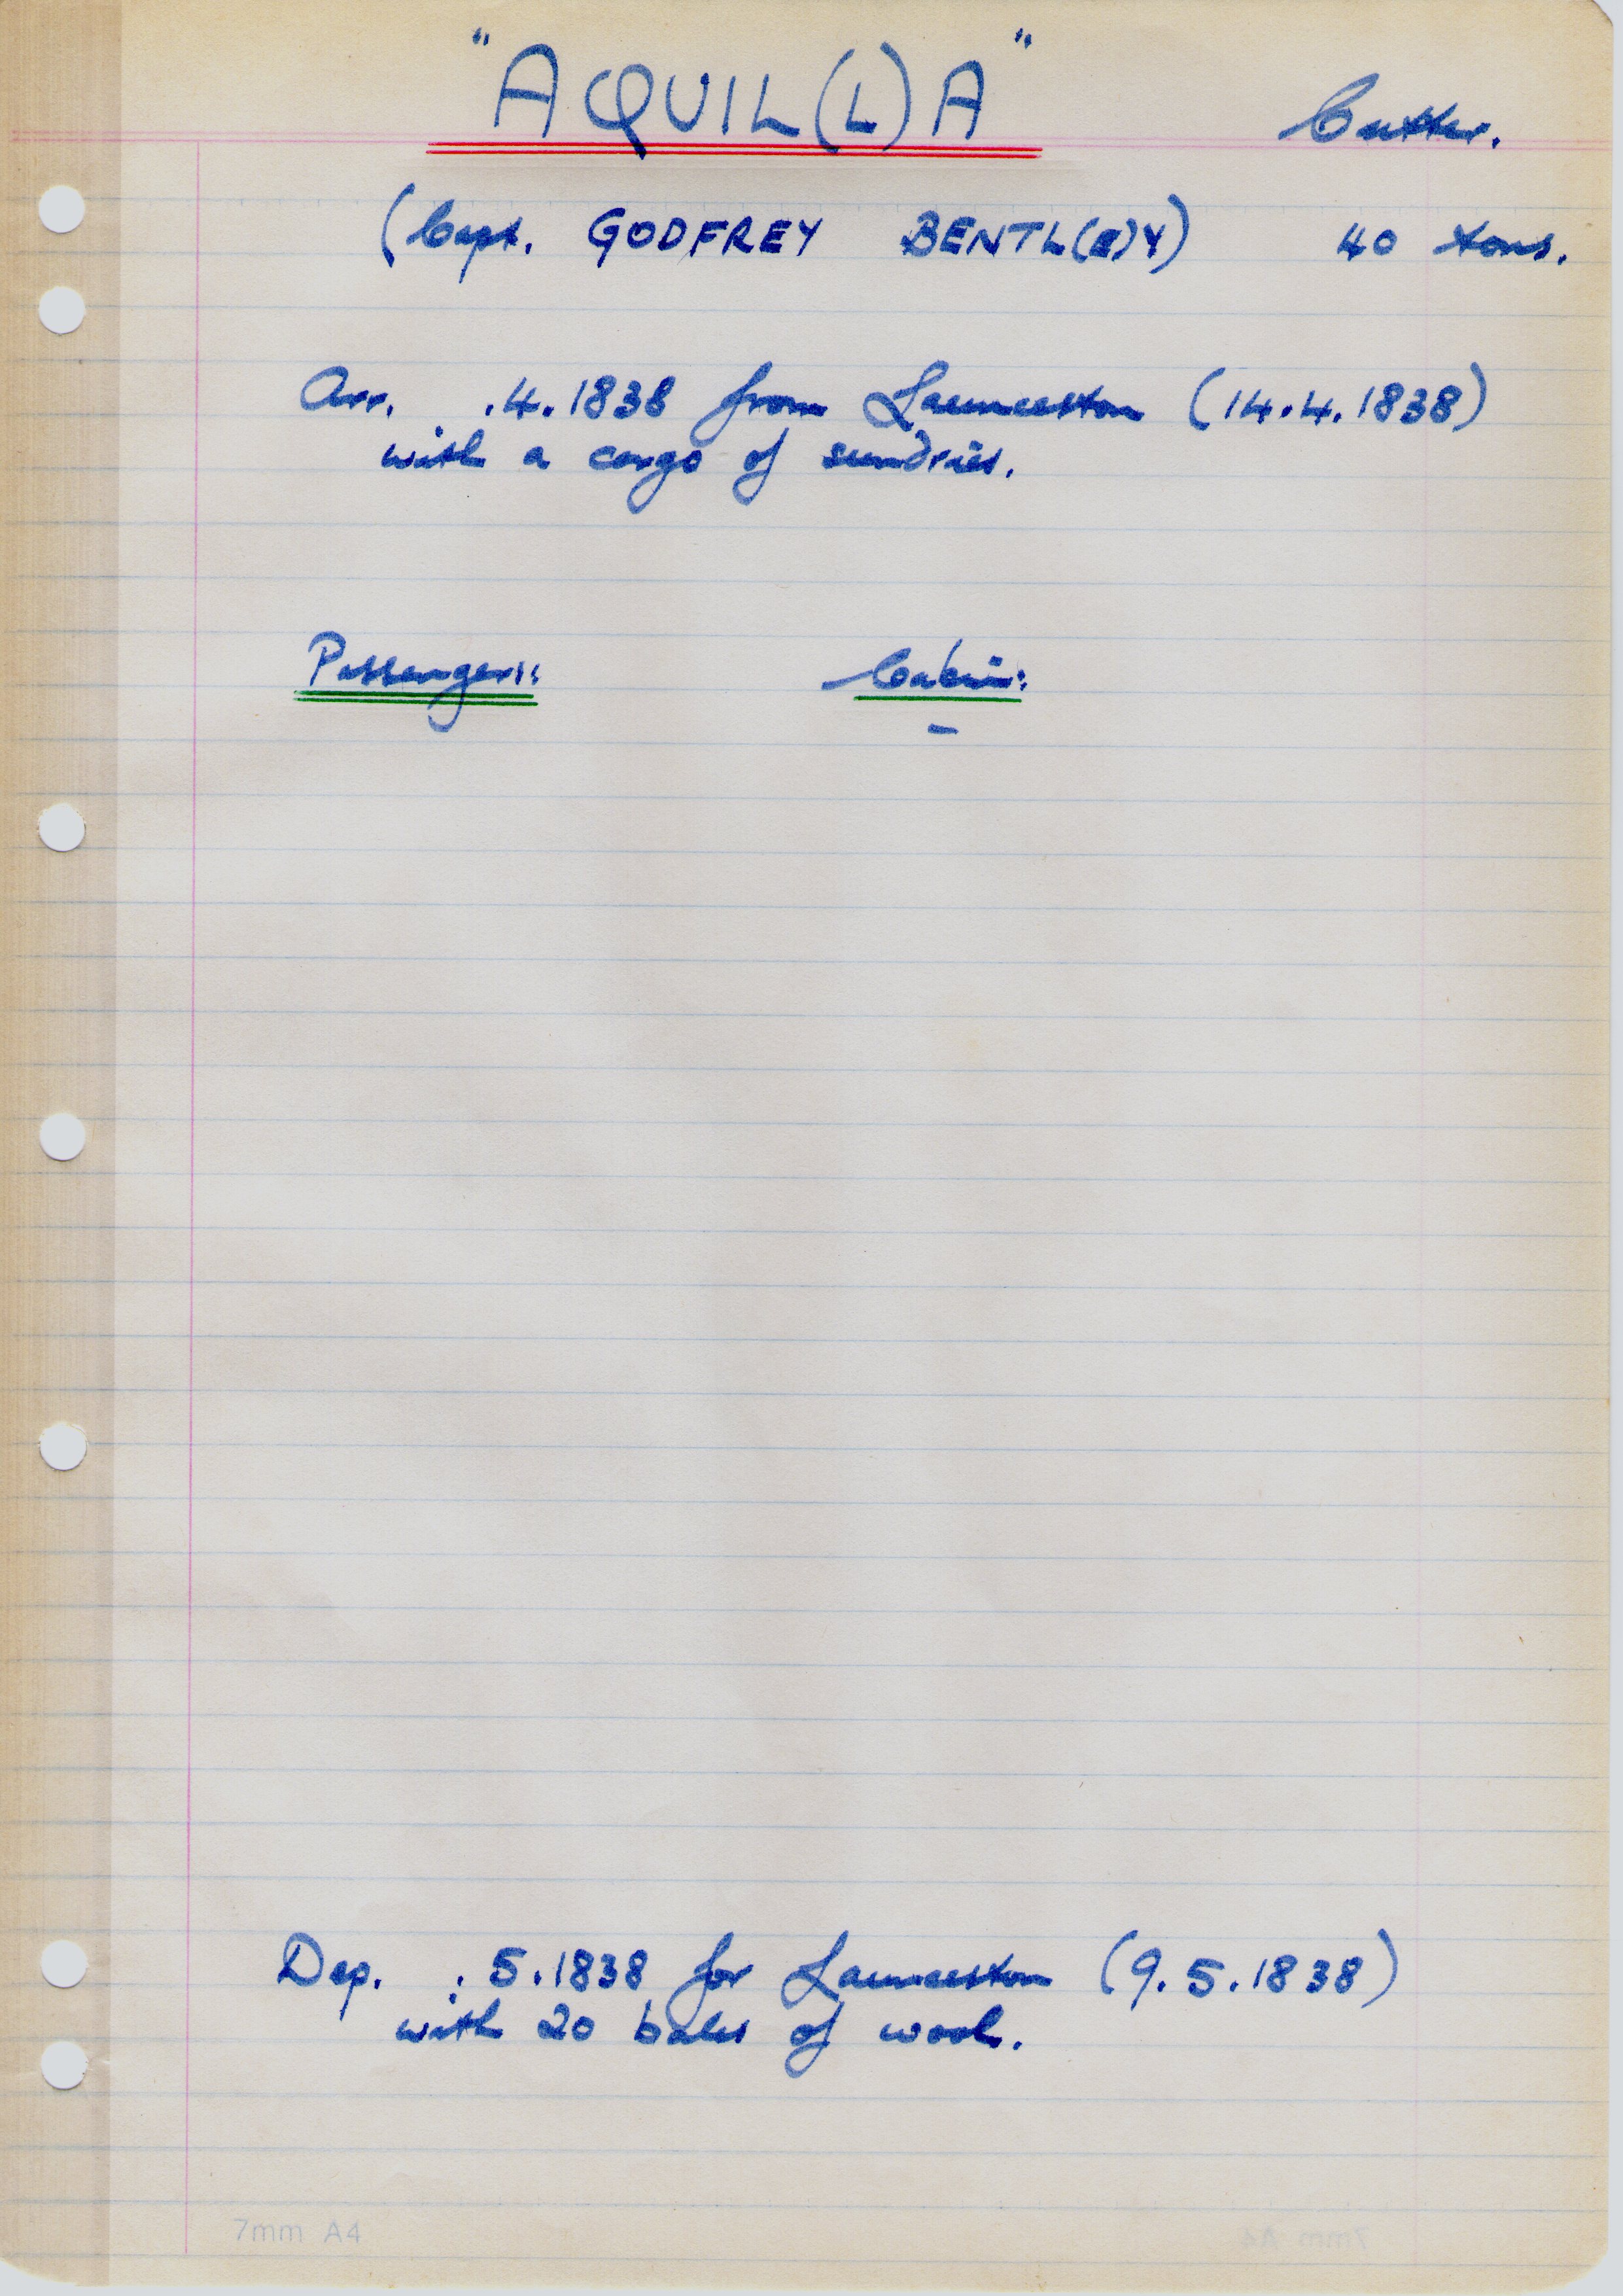 "AQUIL(L)A" Cutter.
(Capt. GODFREY BENTL(E)Y) 40 tons.
Arr. .4.1838 from Launceston (14.4.1838)
with a cargo of sundries.
Passengers: Cabin:
-
Dep. .5.1838 for Launceston (9.5.1838)
with 20 bales of wool.
7mm A4